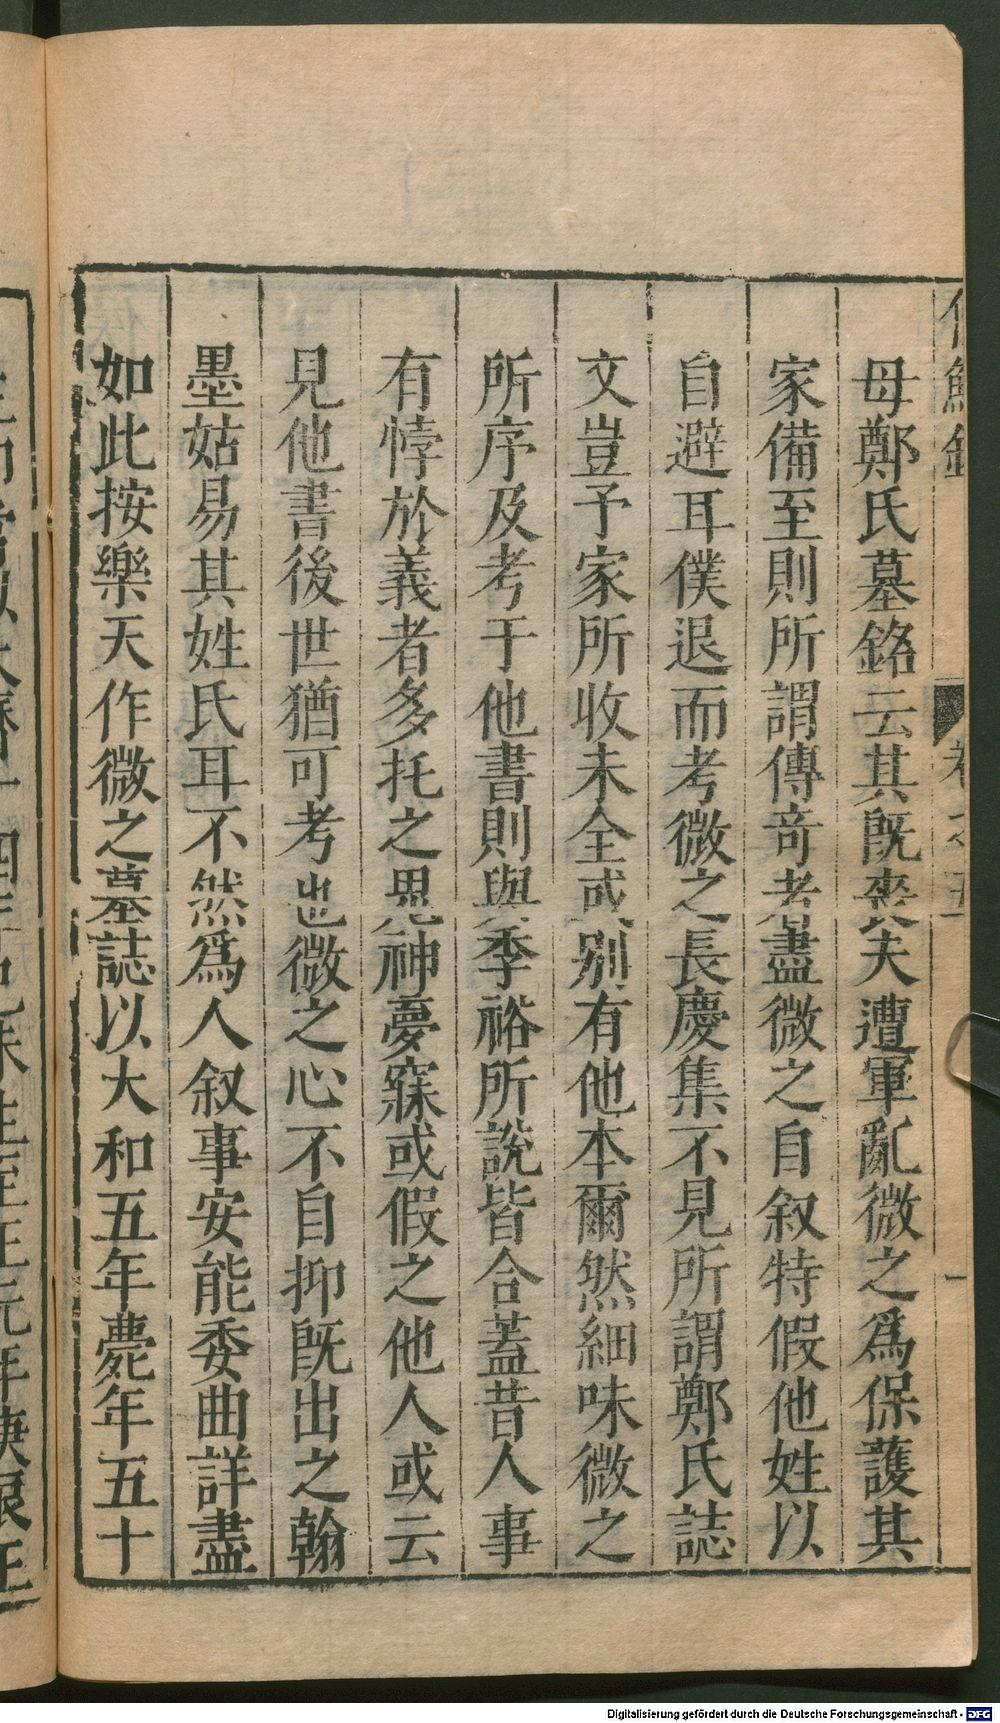 母鄭氏墓銘云其旣喪夫遭軍亂微之爲保護其
家備至則所謂傳奇者盡微之自叙特假他姓以
自避耳僕退而考微之長慶集不見所謂鄭氏誌
文豈予家所收未全或別有他本爾然細味微之
所序及考于他書則與季裕所說皆合蓋昔人事
有悖於義者多托之鬼神夢寐或假之他人或云
見他書後世猶可考也微之心不自抑旣出之翰
墨姑易其姓氏耳不然爲人叙事安能委曲詳盡
如此按樂天作微之墓誌以大和五年薨年五十
Digitalisierung gefördert durch die Deutsche Forschungsgemeinschaft - DFG